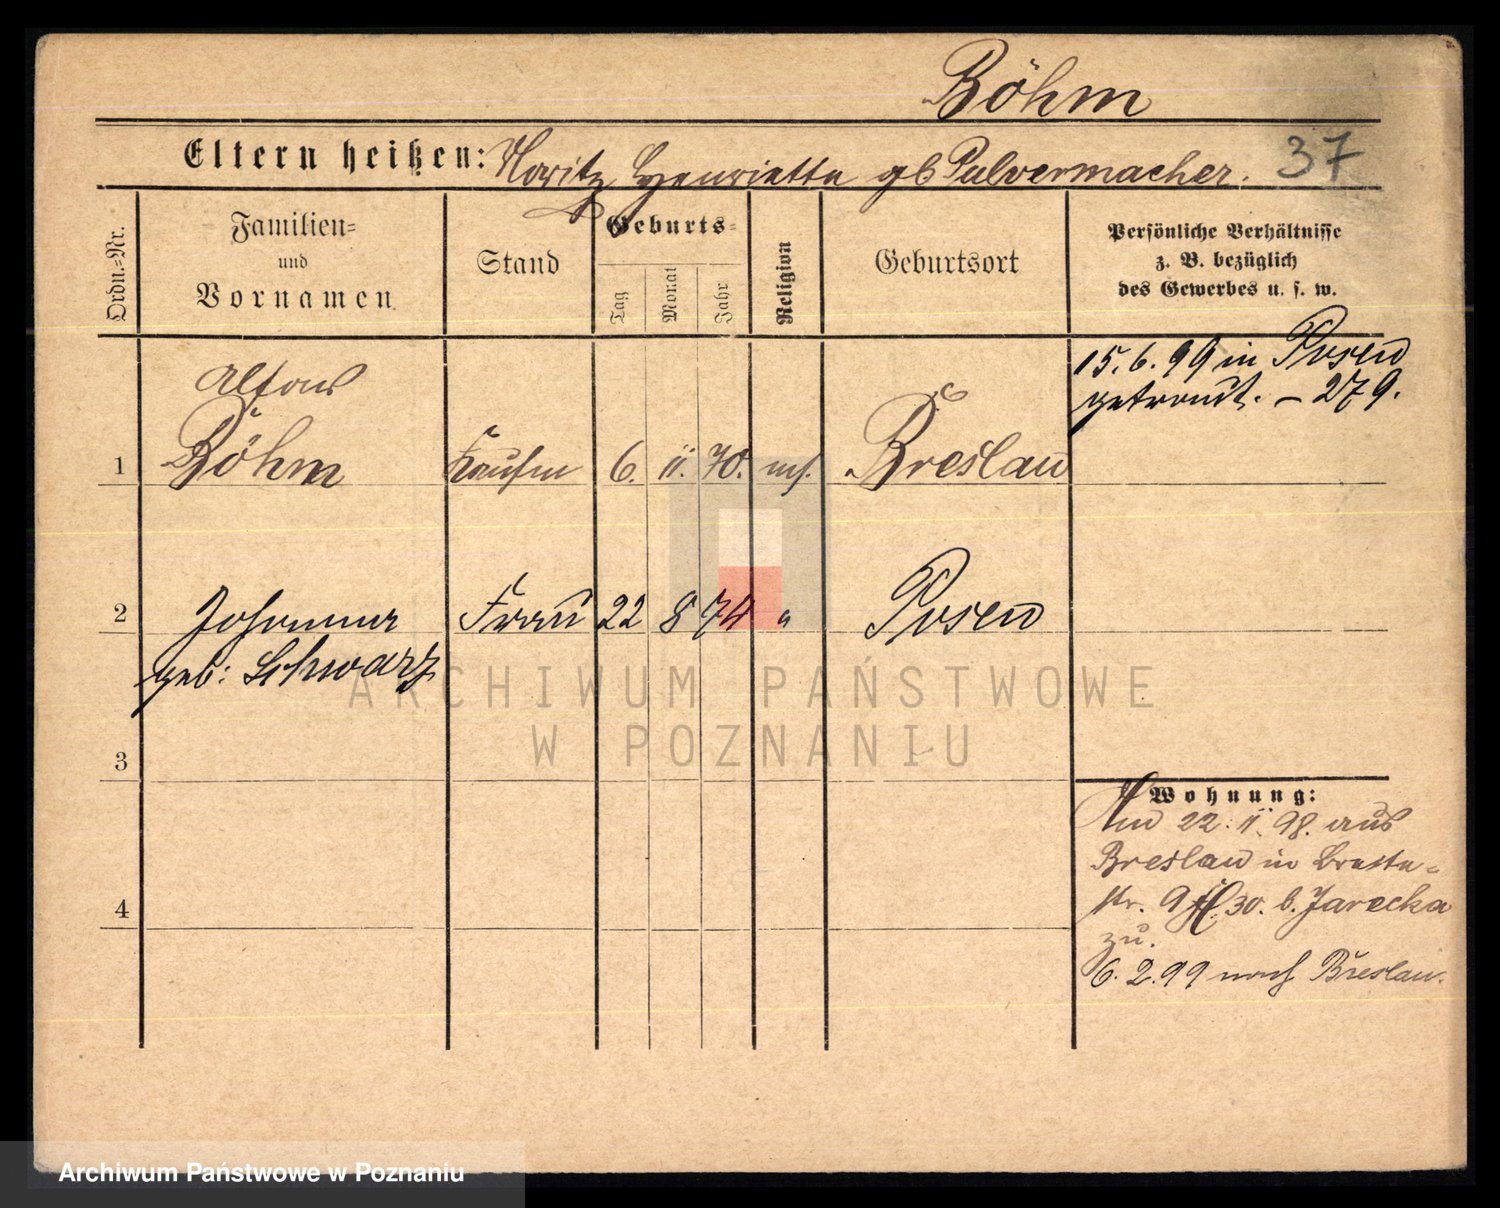 Böhm
Eltern heißen: Moritz Henriette gb Pulvermacher.
37
Ordn.-Nr.
Familien- und Vornamen
Stand
Geburts-
Tag
Monat
Jahr
Religion
Geburtsort
Persönliche Verhältnisse
z. B. bezüglich
des Gewerbes u. s. w.
15.6.99 in Posen
getraut. – 279.
Alfons
1 Böhm Kaufm 6. 11. 70. mos. Breslau
2 Johanna Frau 22 8 74 " Posen
geb: Schwarz
3
4
Wohnung:
Am 22. 11. 98. aus
Breslau in Breite-
str. 9 30. b. Jarecka
zu.
6.2.99 nach Breslau.
ARCHIWUM PAŃSTWOWE
W POZNANIU
Archiwum Państwowe w Poznaniu